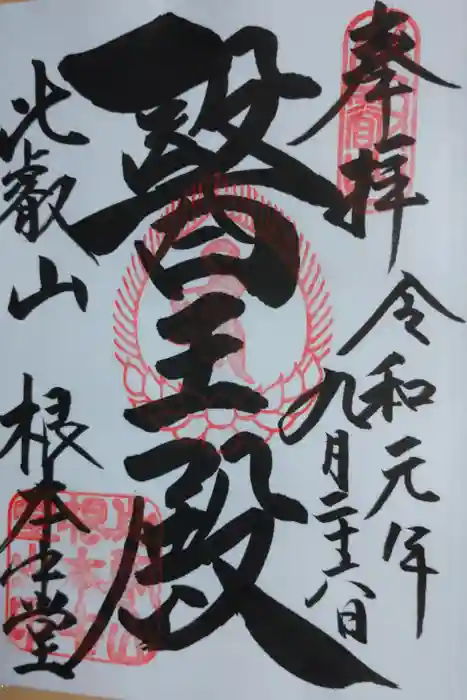 奉拝
令和元年
九月二十八日
醫王殿
比叡山
根本中堂